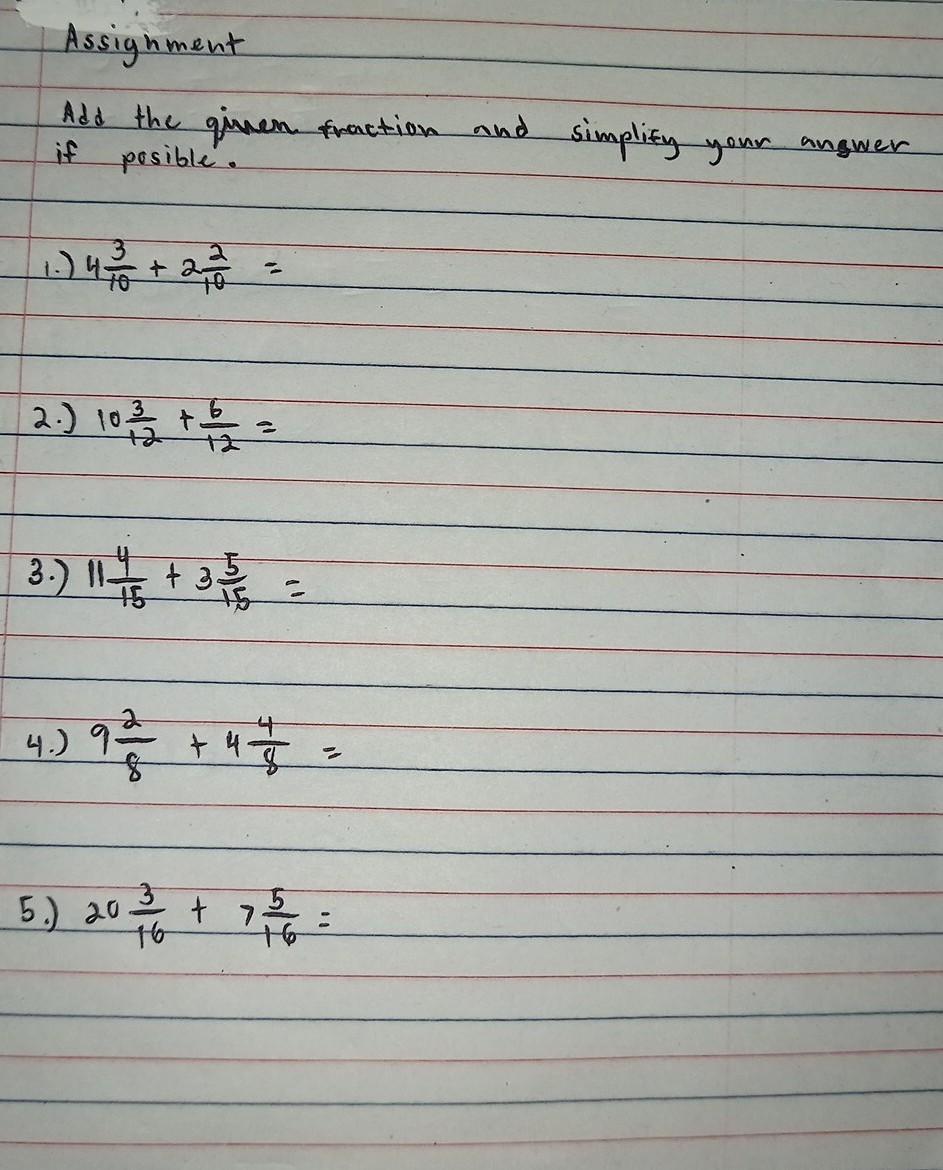 Assignment
Add the given fraction and simplify your answer
if posible.
1.) 4 3/10 + 2 2/10 =
2.) 10 3/12 + 6/12 =
3.) 11 4/15 + 3 5/15 =
4.) 9 2/8 + 4 4/8 =
5.) 20 3/16 + 7 5/16 =